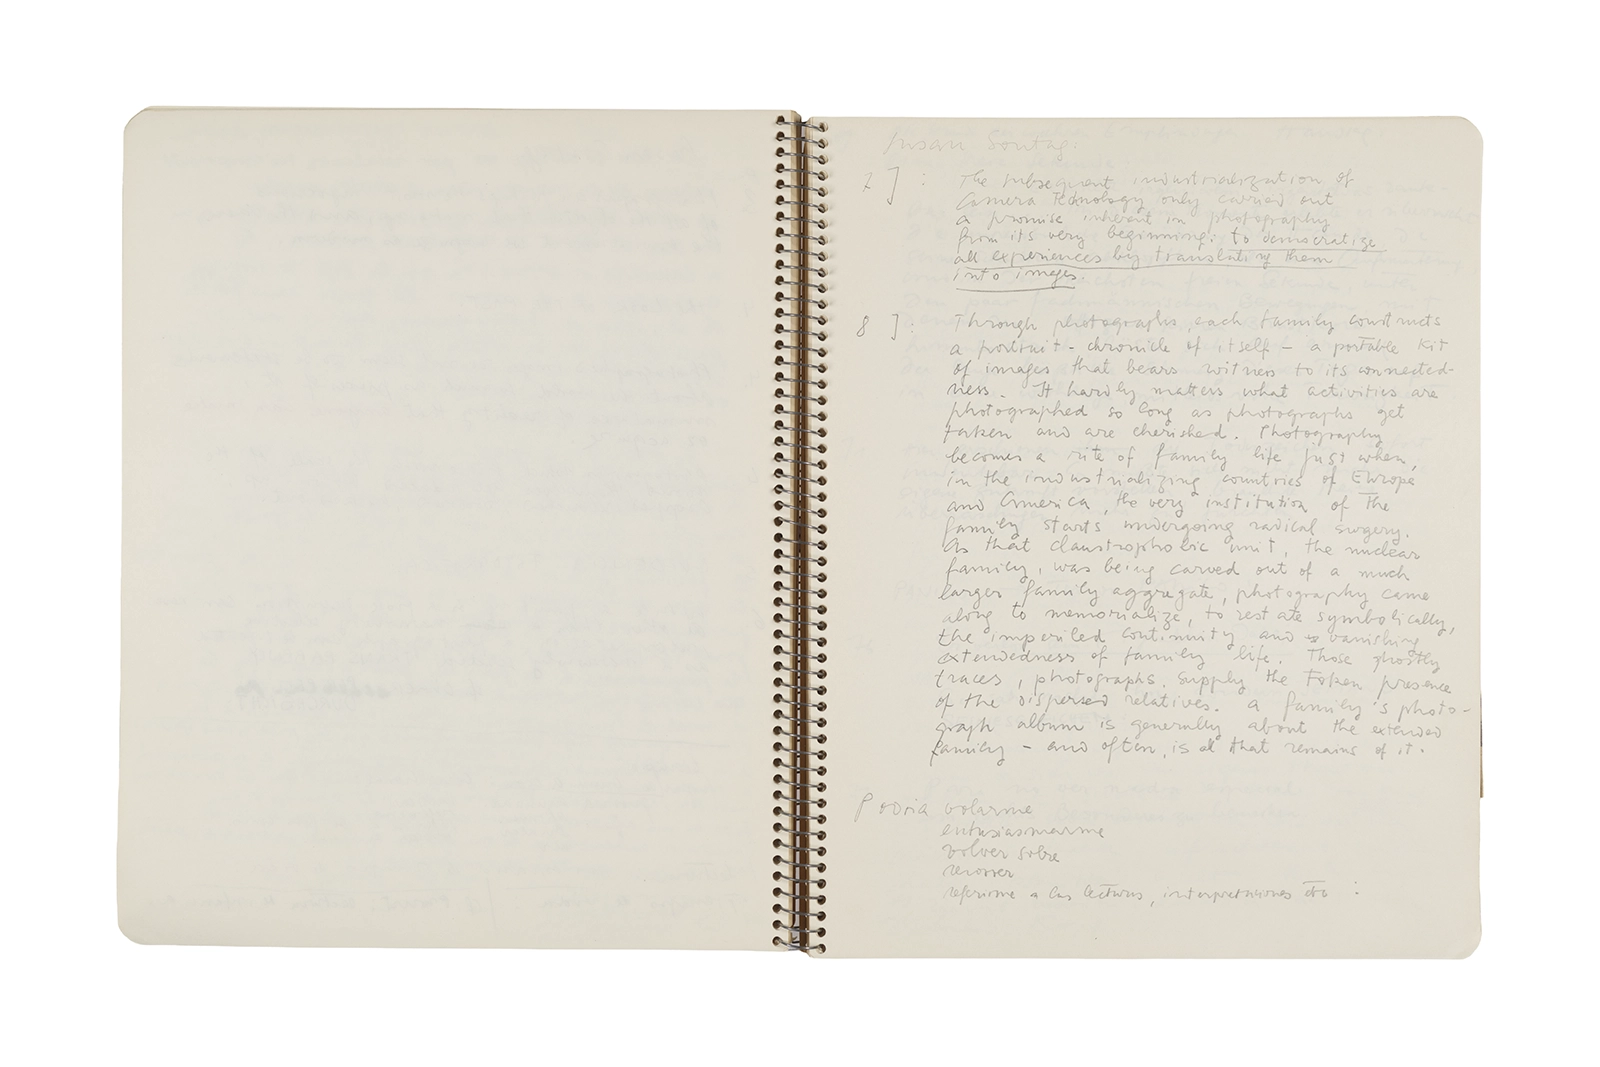 Susan Sontag:
7] : The subsequent industrialization of
camera technology only carried out
a promise inherent in photography
from its very beginning: to democratize
all experiences by translating them
into images.
8 ]: Through photographs, each family constructs
a portrait-chronicle of itself – a portable kit
of images that bears witness to its connected-
ness. It hardly matters what activities are
photographed so long as photographs get
taken and are cherished. Photography
becomes a rite of family life just when,
in the industrializing countries of Europe
and America, the very institution of the
family starts undergoing radical surgery.
As that claustrophobic unit, the nuclear
family, was being carved out of a much
larger family aggregate, photography came
along to memorialize, to restate symbolically,
the imperiled continuity and vanishing
extendedness of family life. Those ghostly
traces, photographs, supply the token presence
of the dispersed relatives. A family's photo-
graph album is generally about the extended
family – and often, is all that remains of it.
Podria volarme
entusiasmarme
volver sobre
recorrer
referirme a las lecturas, interpretaciones etc :